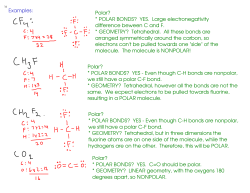 * Examples:
CF4:
C: 4
F: 7x4 = 28
32
:F:
:F-C-F:
:F:
Polar?
* POLAR BONDS? YES. Large electronegativity
difference between C and F.
* GEOMETRY? Tetrahedral. All these bonds are
arranged symmetrically around the carbon, so
electrons can't be pulled towards one 'side' of the
molecule. The molecule is NONPOLAR!
CH3F
C: 4
F: 7
H
H-C-H
:F:
Polar?
* POLAR BONDS? YES - Even though C-H bonds are nonpolar,
we still have a polar C-F bond.
* GEOMETRY? Tetrahedral, however all the bonds are not the
same. We expect electrons to be pulled towards fluorine,
resulting in a POLAR molecule.
CH2F2
C: 4
F: 7x2=14
20
:F:
H-C-F:
H
Polar?
* POLAR BONDS? YES - Even though C-H bonds are nonpolar,
we still have a polar C-F bond.
* GEOMETRY? Tetrahedral, but in three dimensions the
fluorine atoms are on one side of the molecule, while the
hydrogens are on the other. Therefore, this will be POLAR.
CO2
C: 4
O: 6x2=12
16
:O=C=O:
Polar?
* POLAR BONDS? YES. C=O should be polar.
* GEOMETRY? LINEAR geometry, with the oxygens 180
degrees apart, so NONPOLAR.